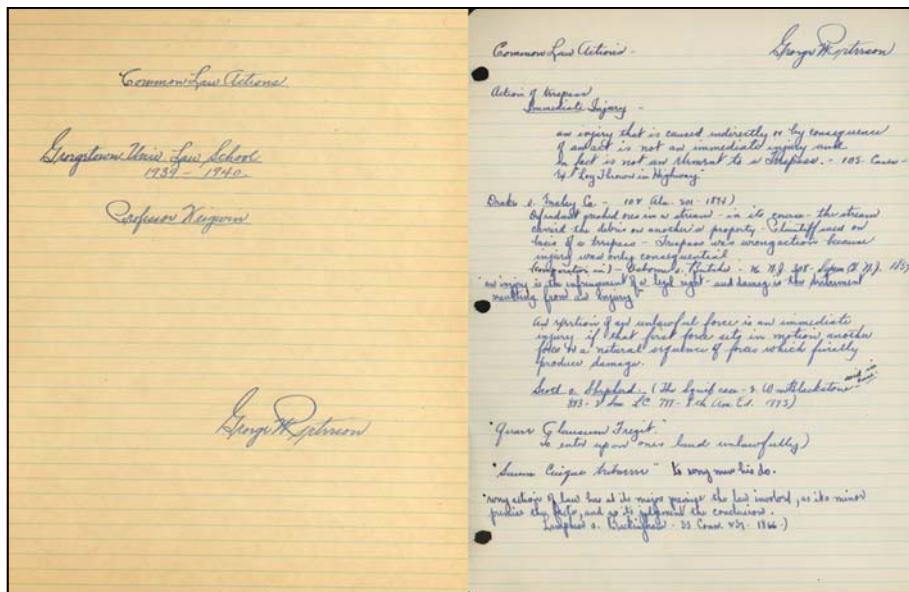 Common Law Actions
Georgetown Univ. Law School
1939 - 1940
Professor Keigwin
George W Peterson
Common Law Actions -
George W Peterson
Action of trespass
Immediate Injury -
an injury that is caused indirectly or by consequence
of an act is not an immediate injury and
in fact is not an element to a Trespass. - 105-
"Log Thrown in Highway"
Drake v. Co. - 102 Ala. 501 - 1893)
Defendant pushed ores in a stream - in its course - the stream
carried the debris on another's property - Plaintiff sued on
basis of a trespass - Trespass was wrong action because
injury was only consequential
an injury is the infringement of a legal right - and damage is the detriment
resulting from an injury
An exertion of an unlawful force is an immediate
injury if that first force sets in motion another
force or a natural sequence of forces which finally
produce damage.
Scott v. Shepherd. (The Squib case - 2 Wm Blackstone
893 - 1773)
"Quare Clausum Fregit."
to enter upon ones land unlawfully)
"Suum Cuique" to every man his do.
"every action of law has as its major premise the law involved, as its minor
premise the facts, and as its judgment the conclusion.
v. Buckingham - 33 Conn. - 1866 -)